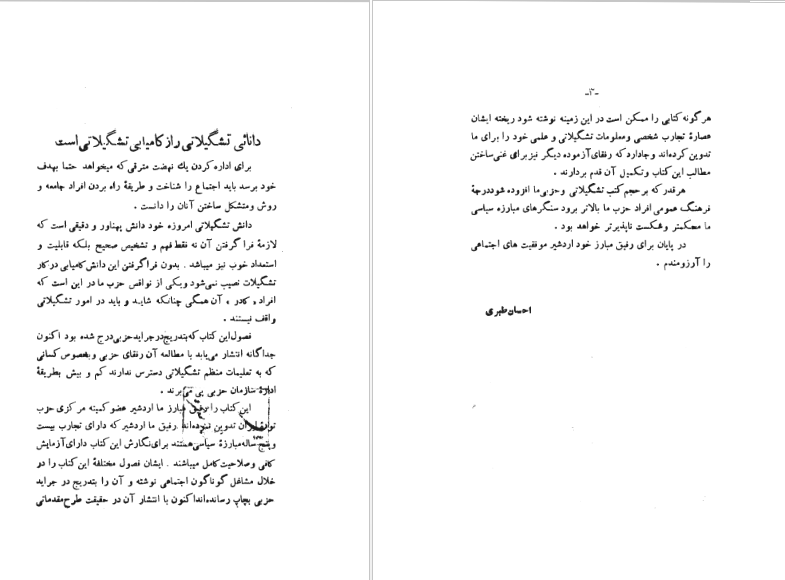 دانائی تشگیلاتی راز کامیابی تشگیلاتی است
برای اداره کردن یك نهضت مترقی که میخواهد حتما بهدف
خود برسد باید اجتماع را شناخت و طریقهٔ راه بردن افراد جامعه و
روش ومتشکل ساختن آنان را دانست .
دانش تشگیلاتی امروزه خود دانش پهناور و دقیقی است که
لازمهٔ فرا گرفتن آن نه فقط فهم و تشخیص صحیح بلکه قابلیت و
استعداد خوب نیز میباشد . بدون فرا گرفتن این دانش کامیابی در کار
تشگیلات نصیب نمی‌شود ویکی از نواقص حزب ما در این است که
افراد و کادر ، آن همگی چنانکه شاید و باید در امور تشگیلاتی
واقف نیستند .
فصول این کتاب که بتدریج در جراید حزبی درج شده بود اکنون
جداگانه انتشار می‌یابد با مطالعه آن رفقای حزبی وبخصوص کسانی
که به تعلیمات منظم تشگیلاتی دسترس ندارند کم و بیش بطریقهٔ
ادارهٔ سازمان حزبی پی می‌برند .
این کتاب را رفیق مبارز ما اردشیر عضو کمیته مرکزی حزب
تودهٔ ایران تدوین نموده‌اند رفیق ما اردشیر که دارای تجارب بیست
وپنج ساله مبارزهٔ سیاسی هستند برای نگارش این کتاب دارای آزمایش
کافی وصلاحیت کامل میباشند . ایشان فصول مختلفهٔ این کتاب را در
خلال مشاغل گوناگون اجتماعی نوشته و آن را بتدریج در جراید
حزبی بچاپ رسانده‌اند اکنون با انتشار آن در حقیقت طرح مقدماتی
-۳-
هر گونه کتابی را ممکن است در این زمینه نوشته شود ریخته ایشان
عصارهٔ تجارب شخصی ومعلومات تشگیلاتی و علمی خود را برای ما
تدوین کرده‌اند وجادارد که رفقای آزموده دیگر نیز برای غنی ساختن
مطالب این کتاب وتکمیل آن قدم بردارند .
هر قدر که بر حجم کتب تشگیلاتی وحزبی ما افزوده شود درجهٔ
فرهنگ عمومی افراد حزب ما بالاتر برود سنگرهای مبارزه سیاسی
ما محکمتر وشکست ناپذیرتر خواهد بود .
در پایان برای رفیق مبارز خود اردشیر موفقیت های اجتماعی
را آرزومندم .
احسان طبری